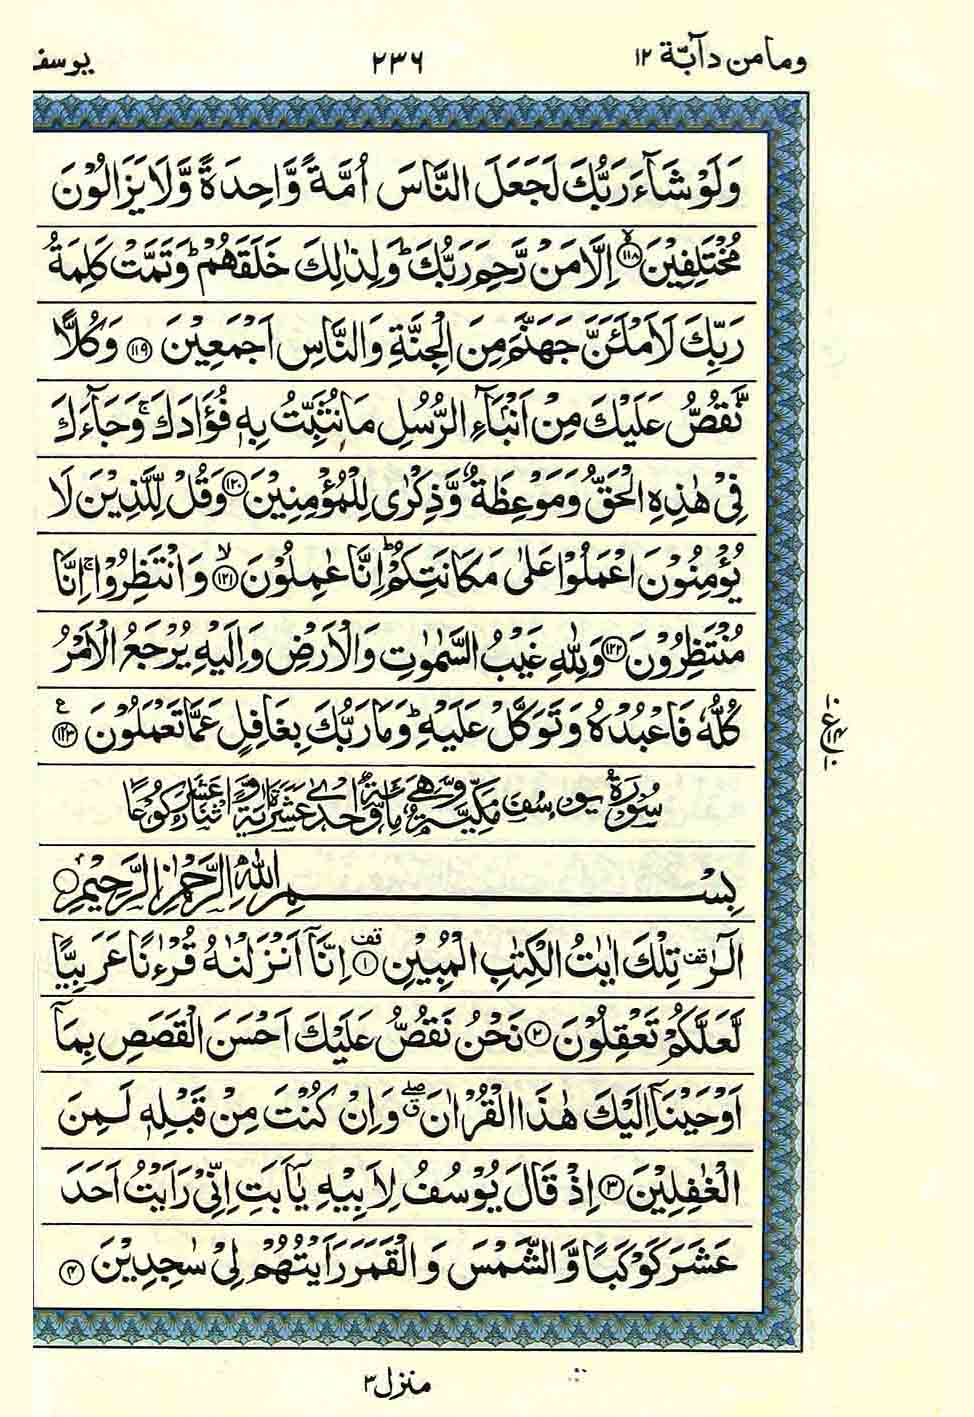 وما من دآبّة ١٢
٢٣٦
يوسف
وَلَوْ شَآءَ رَبُّكَ لَجَعَلَ النَّاسَ اُمَّةً وَّاحِدَةً وَّلَا يَزَالُوْنَ
مُخْتَلِفِيْنَ ۙ﴿١١٨﴾ اِلَّا مَنْ رَّحِمَ رَبُّكَ ؕ وَلِذٰلِكَ خَلَقَهُمْ ؕ وَتَمَّتْ كَلِمَةُ
رَبِّكَ لَاَمْلَـَٔنَّ جَهَنَّمَ مِنَ الْجِنَّةِ وَالنَّاسِ اَجْمَعِيْنَ ﴿١١٩﴾ وَكُلًّا
نَّقُصُّ عَلَيْكَ مِنْ اَنْۢبَآءِ الرُّسُلِ مَا نُثَبِّتُ بِهٖ فُؤَادَكَ ۚ وَجَآءَكَ
فِيْ هٰذِهِ الْحَقُّ وَمَوْعِظَةٌ وَّذِكْرٰى لِلْمُؤْمِنِيْنَ ﴿١٢٠﴾ وَقُلْ لِّلَّذِيْنَ لَا
يُؤْمِنُوْنَ اعْمَلُوْا عَلٰى مَكَانَتِكُمْ ؕ اِنَّا عٰمِلُوْنَ ۙ﴿١٢١﴾ وَانْتَظِرُوْا ۚ اِنَّا
مُنْتَظِرُوْنَ ﴿١٢٢﴾ وَلِلّٰهِ غَيْبُ السَّمٰوٰتِ وَالْاَرْضِ وَاِلَيْهِ يُرْجَعُ الْاَمْرُ
كُلُّهٗ فَاعْبُدْهُ وَتَوَكَّلْ عَلَيْهِ ؕ وَمَا رَبُّكَ بِغَافِلٍ عَمَّا تَعْمَلُوْنَ ﴿١٢٣﴾ ع
سُوْرَةُ يُوْسُفَ مَكِّيَّةٌ وَّهِيَ مِائَةٌ وَّاِحْدٰى عَشَرَةَ اٰيَةً وَّاثْنَا عَشَرَ رُكُوْعًا
بِسْمِ اللّٰهِ الرَّحْمٰنِ الرَّحِيْمِ
الٓرٰ ۫ تِلْكَ اٰيٰتُ الْكِتٰبِ الْمُبِيْنِ ۫﴿١﴾ اِنَّآ اَنْزَلْنٰهُ قُرْءٰنًا عَرَبِيًّا
لَّعَلَّكُمْ تَعْقِلُوْنَ ﴿٢﴾ نَحْنُ نَقُصُّ عَلَيْكَ اَحْسَنَ الْقَصَصِ بِمَآ
اَوْحَيْنَآ اِلَيْكَ هٰذَا الْقُرْاٰنَ ۖ ق وَاِنْ كُنْتَ مِنْ قَبْلِهٖ لَمِنَ
الْغٰفِلِيْنَ ﴿٣﴾ اِذْ قَالَ يُوْسُفُ لِاَبِيْهِ يٰٓاَبَتِ اِنِّيْ رَاَيْتُ اَحَدَ
عَشَرَ كَوْكَبًا وَّالشَّمْسَ وَالْقَمَرَ رَاَيْتُهُمْ لِيْ سٰجِدِيْنَ ﴿٤﴾
١٠
ع
١٤
١٠
منزل ٣